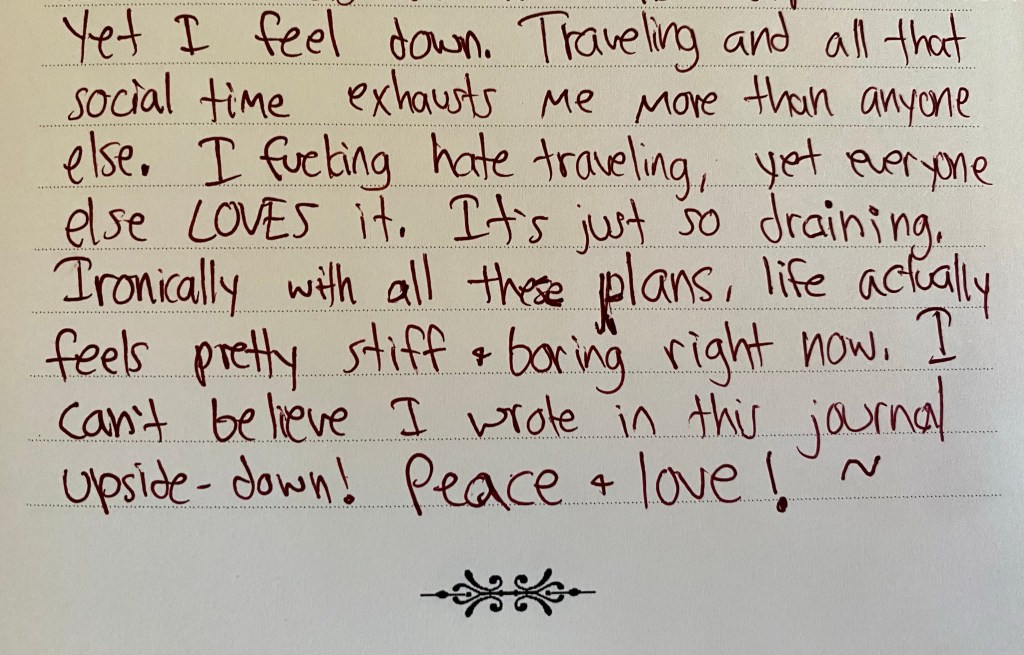 Yet I feel down. Traveling and all that
social time exhausts me more than anyone
else. I fucking hate traveling, yet everyone
else LOVES it. It's just so draining.
Ironically with all these plans, life actually
feels pretty stiff + boring right now. I
can't believe I wrote in this journal
upside-down! Peace + love! ~